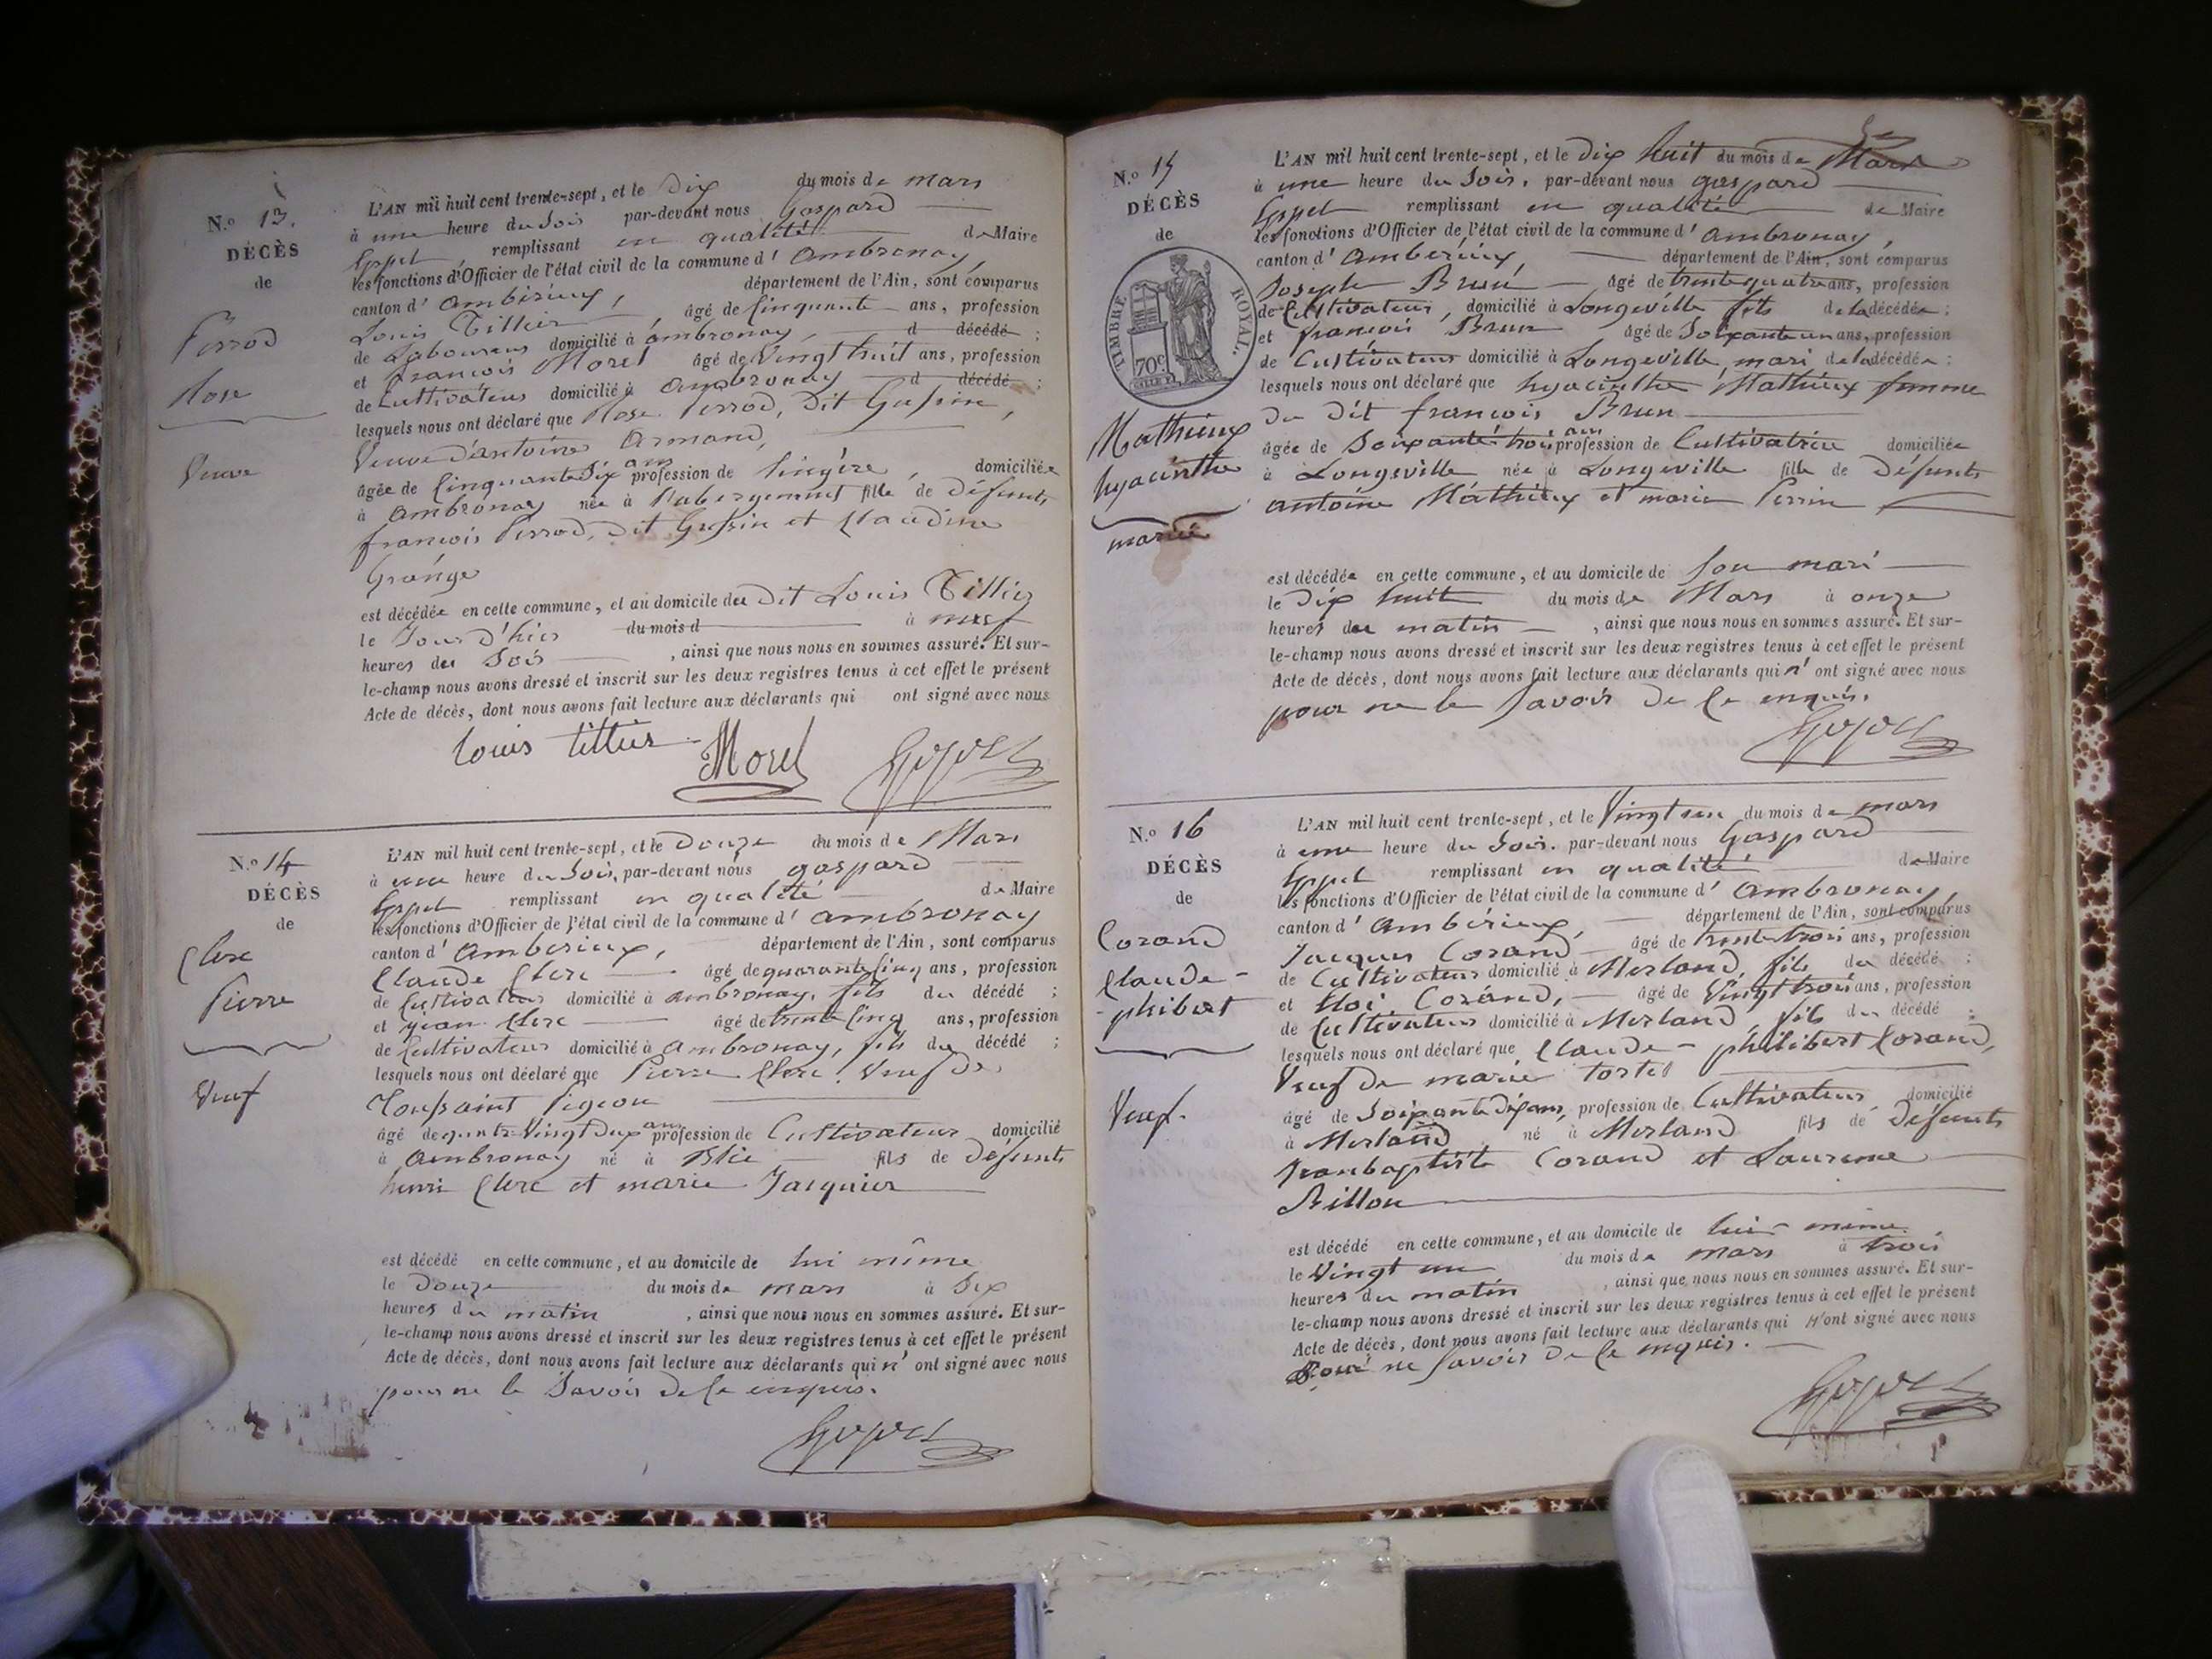 N.º 13.
DÉCÈS
de
Perrod
Rose
Veuve
L'AN mil huit cent trente-sept, et le Dix du mois de mars
à une heure du Soir par-devant nous Gaspard
remplissant en qualité de Maire
les fonctions d'Officier de l'état civil de la commune d'ambronay,
canton d'ambérieux, département de l'Ain, sont comparus
Louis Tillier, âgé de Cinquante ans, profession
de Laboureur domicilié à ambronay, d décédé ;
et françois Morel âgé de Vingt huit ans, profession
de Cultivateur domicilié à ambronay d décédé ;
lesquels nous ont déclaré que Rose Perrod, Dit
Veuve d'antoine Armand,
âgée de Cinquante Dix ans profession de lingère, domiciliée
à ambronay née à l'abergement fille de Défunts
françois Perrod, Dit et Claudine
Grange
est décédée en cette commune, et au domicile du Dit Louis Tillier
le Jour d'hier du mois d à neuf
heures du Soir, ainsi que nous nous en sommes assuré. Et sur-
le-champ nous avons dressé et inscrit sur les deux registres tenus à cet effet le présent
Acte de décès, dont nous avons fait lecture aux déclarants qui ont signé avec nous
Louis tillier Morel
N.º 14
DÉCÈS
de
Clerc
Pierre
Veuf
L'AN mil huit cent trente-sept, et le Douze du mois de Mars
à une heure du Soir, par-devant nous gaspard
remplissant en qualité de Maire
les fonctions d'Officier de l'état civil de la commune d'ambronay
canton d'ambérieux, département de l'Ain, sont comparus
Claude Clerc âgé de quarante cinq ans, profession
de Cultivateur domicilié à ambronay, fils du décédé ;
et jean Clerc âgé de trente Cinq ans, profession
de Cultivateur domicilié à ambronay, fils du décédé ;
lesquels nous ont déclaré que Pierre Clerc, Veuf De
Toussaint Pigeon
âgé de quatre Vingt Deux ans profession de Cultivateur domicilié
à ambronay né à Blie fils de Défunts
henri Clerc et marie Jacquier
est décédé en cette commune, et au domicile de lui même
le Douze du mois de mars à Dix
heures du matin, ainsi que nous nous en sommes assuré. Et sur-
le-champ nous avons dressé et inscrit sur les deux registres tenus à cet effet le présent
Acte de décès, dont nous avons fait lecture aux déclarants qui n'ont signé avec nous
pour ne le Savoir de ce enquis.
N.º 15
DÉCÈS
de
TIMBRE ROYAL.
70c.
Mathieux
hyacinthe
mariée
L'AN mil huit cent trente-sept, et le Dix huit du mois de Mars
à une heure du Soir, par-devant nous gaspard
remplissant en qualité de Maire
les fonctions d'Officier de l'état civil de la commune d'ambronay,
canton d'ambérieux, département de l'Ain, sont comparus
Joseph Brun âgé de trente quatre ans, profession
de Cultivateur, domicilié à Longeville fils de la décédée ;
et françois Brun âgé de Soixante un ans, profession
de Cultivateur domicilié à Longeville, mari de la décédée ;
lesquels nous ont déclaré que hyacinthe Mathieux femme
du dit françois Brun
âgée de Soixante trois ans profession de Cultivatrice domiciliée
à Longeville née à Longeville fille de Défunts
antoine Mathieux et marie Perrin
est décédée en cette commune, et au domicile de Son mari
le Dix huit du mois de Mars à onze
heures du matin, ainsi que nous nous en sommes assuré. Et sur-
le-champ nous avons dressé et inscrit sur les deux registres tenus à cet effet le présent
Acte de décès, dont nous avons fait lecture aux déclarants qui n'ont signé avec nous
pour ne le Savoir de ce enquis.
N.º 16
DÉCÈS
de
Corand
Claude-
phibert
Veuf.
L'AN mil huit cent trente-sept, et le Vingt un du mois de mars
à une heure du Soir. par-devant nous Gaspard
remplissant en qualité de Maire
les fonctions d'Officier de l'état civil de la commune d'ambronay,
canton d'ambérieux, département de l'Ain, sont comparus
Jacques Corand âgé de trente trois ans, profession
de Cultivateur domicilié à Merland, fils du décédé ;
et Eloi Corand, âgé de Vingt trois ans, profession
de Cultivateur domicilié à Merland, fils du décédé ;
lesquels nous ont déclaré que Claude-philibert Corand,
Veuf De marie tortel
âgé de Soixante Dix ans, profession de Cultivateur domicilié
à Merland né à Merland fils de Défunts
Jean baptiste Corand et Laurence
Billon
est décédé en cette commune, et au domicile de lui-même
le Vingt un du mois de mars à trois
heures du matin, ainsi que nous nous en sommes assuré. Et sur-
le-champ nous avons dressé et inscrit sur les deux registres tenus à cet effet le présent
Acte de décès, dont nous avons fait lecture aux déclarants qui n'ont signé avec nous
Pour ne Savoir De ce enquis.